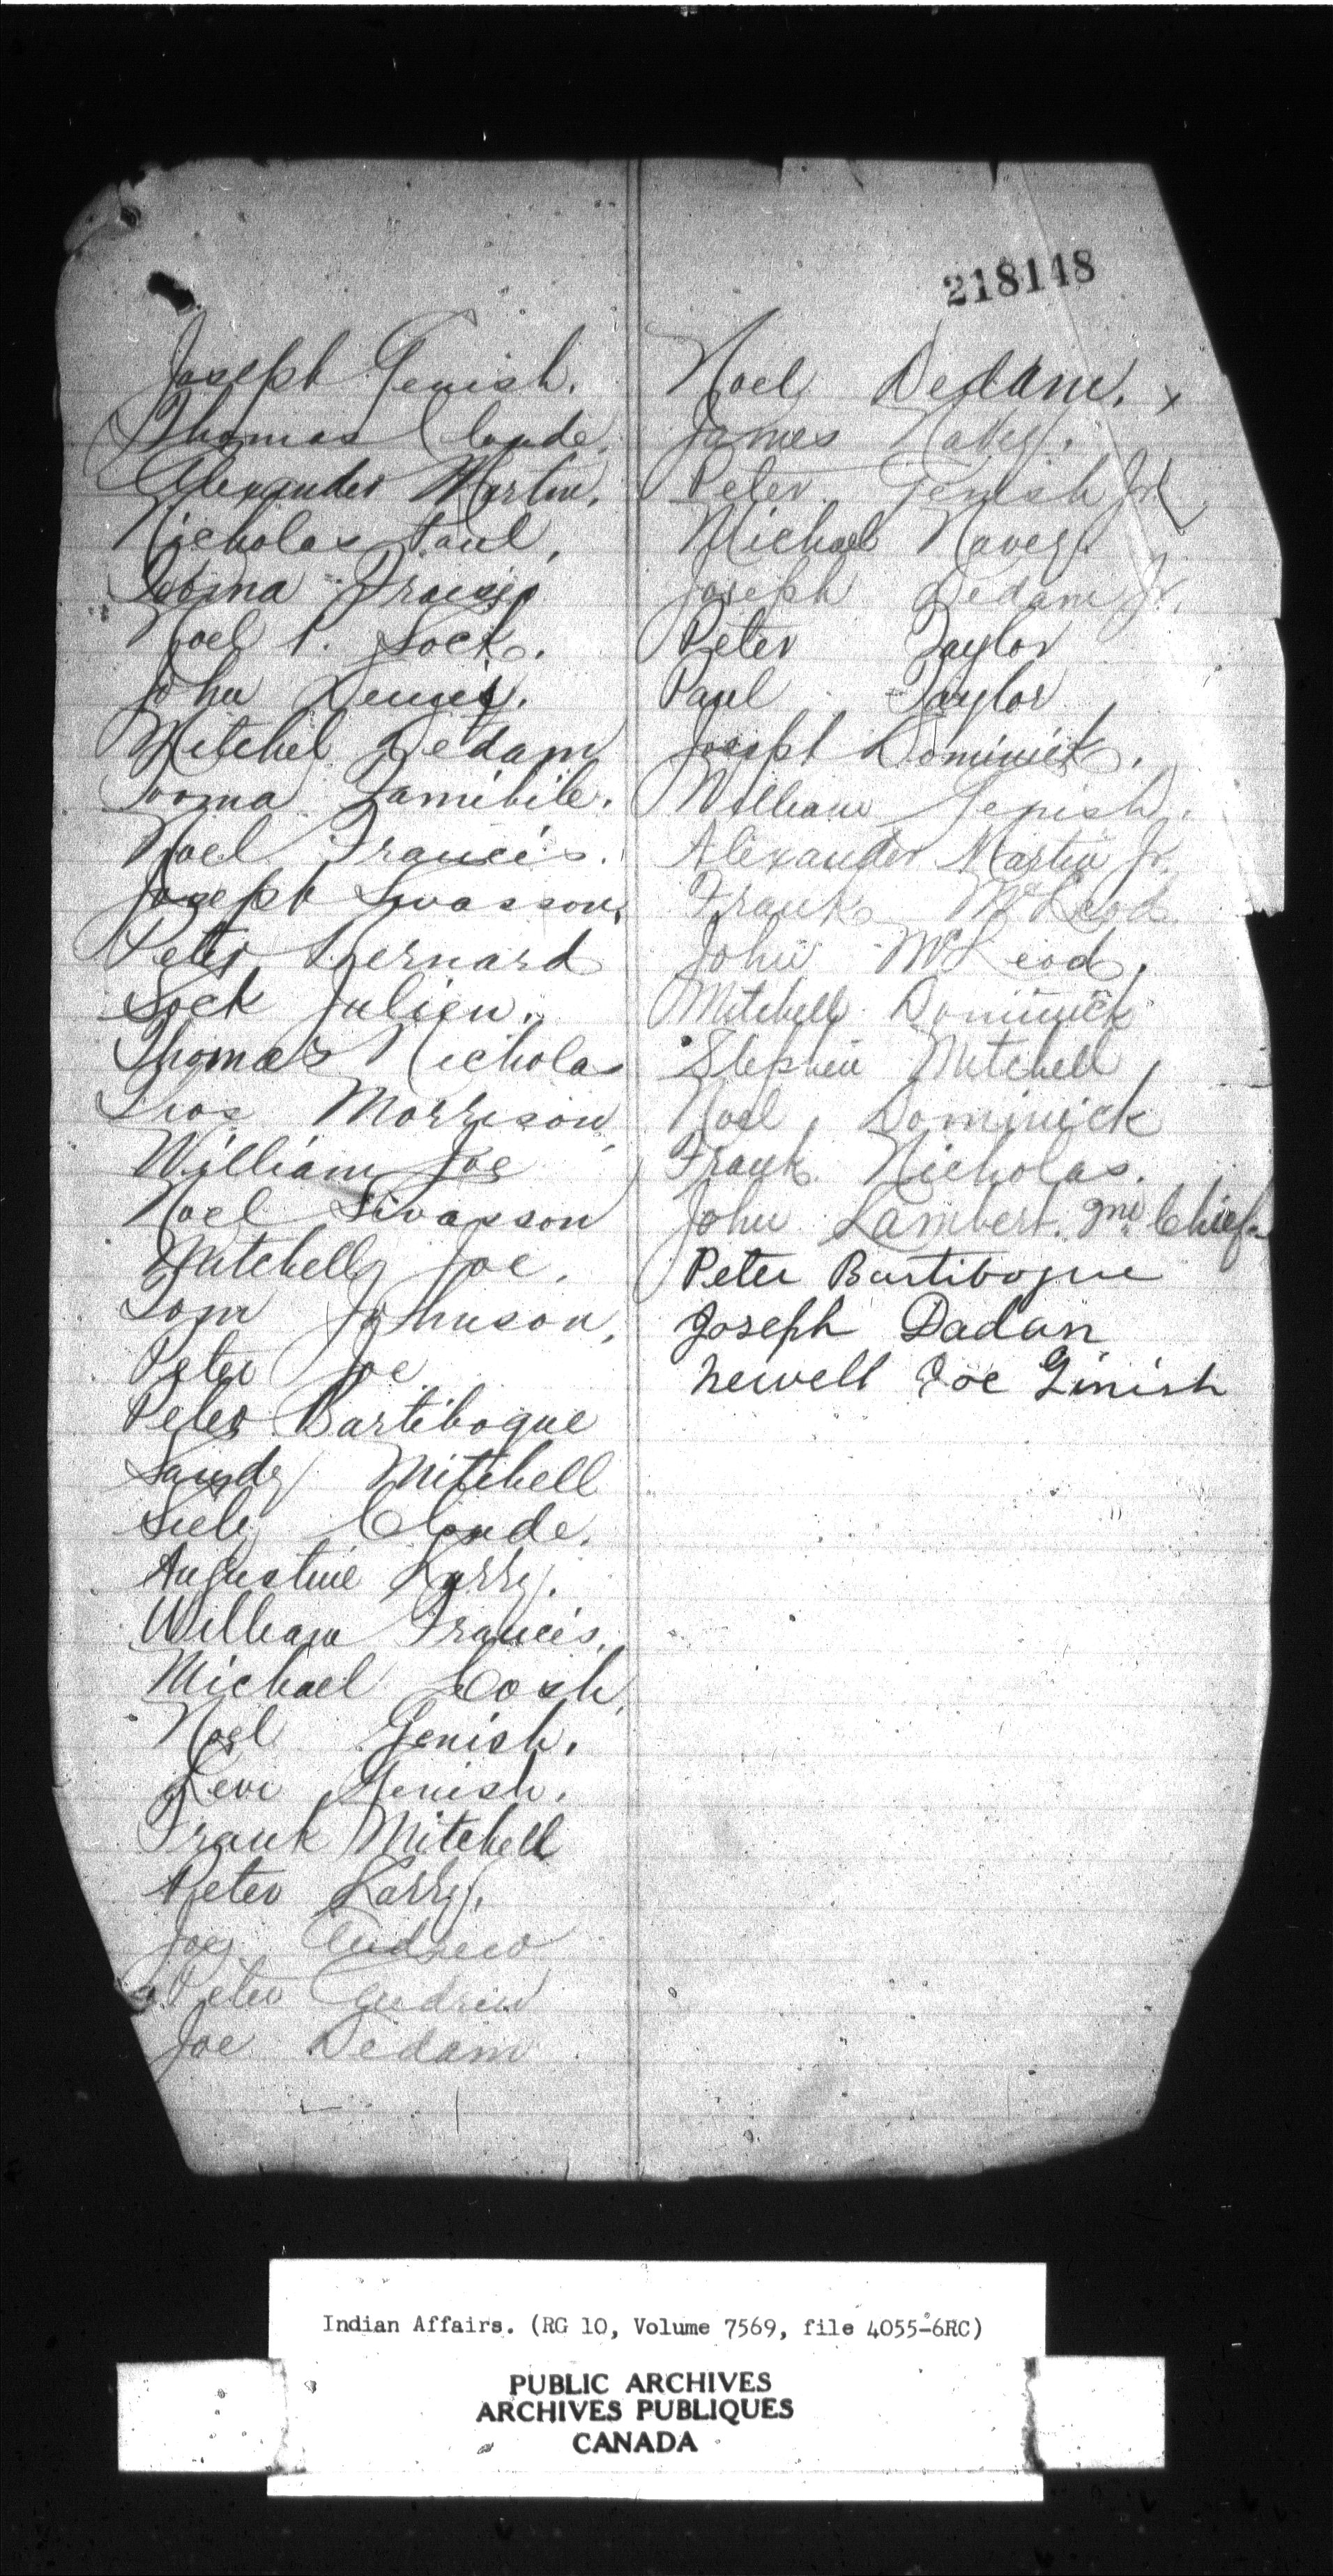 218148
Joseph Genish.
Thomas Claude.
Alexander Martin.
Nicholas Paul.
Francis
Noel P. Sock.
John Denis.
Mitchel Dedam
Noel Francis.
Joseph Swasson.
Peter Bernard
Sock Julien.
Thomas Nicholas
Morrison
William Joe
Noel Swasson
Mitchell Joe.
Tom Johnson.
Peter Joe
Peter Bartibogue
Sandy Mitchell
Claude.
Augustine Larry.
William Francis.
Michael Cosh.
Noel Genish.
Levi Genish.
Frank Mitchell
Peter Larry.
Joe Andrew
Peter Andrew
Joe Dedam
Noel Dedam. x
James Navey.
Peter Genish Jr.
Michael Navey.
Joseph Dedam Jr.
Peter Taylor
Paul Taylor
Joseph Dominick.
William Genish.
Alexander Martin Jr.
Frank McLeod.
John McLeod.
Mitchell Dominick
Stephen Mitchell
Noel Dominick
Frank Nicholas.
John Lambert. 2nd Chief.
Peter Bartibogue
Joseph Dadan
Newell Joe Ginish
Indian Affairs. (RG 10, Volume 7569, file 4055-6RC)
PUBLIC ARCHIVES
ARCHIVES PUBLIQUES
CANADA